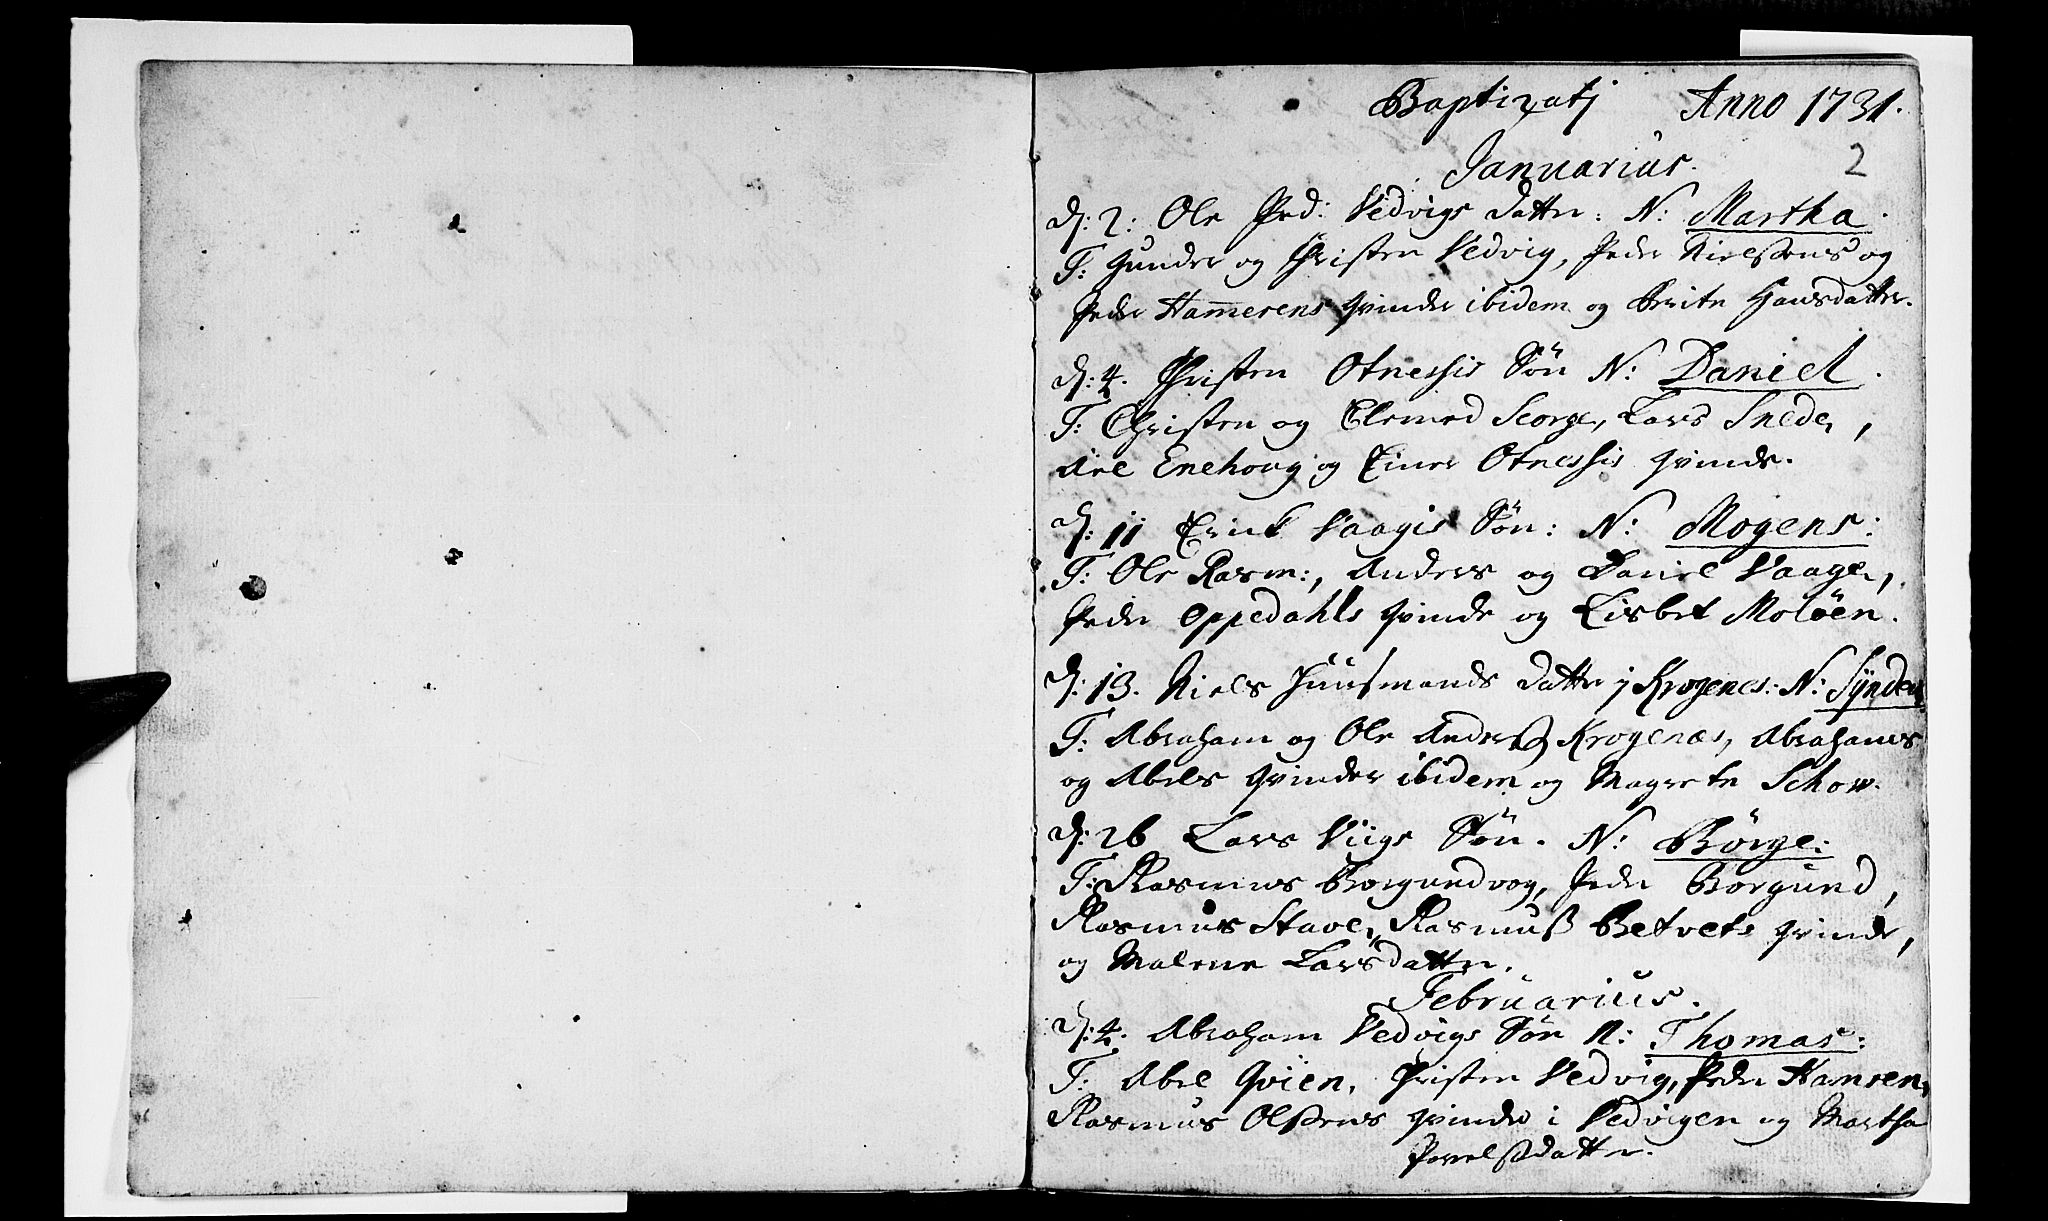 Baptizatj Anno 1731.
Januarius. 2
D: 2: Ole Ped: Vedvigs datter: N: Martha.
T: Gunder og Christen Vedvig, Peder Nielsens og
Peder Hamerens qvinder ibidem og Brite Hansdatter.
D: 4. Christen Otnessis Søn N: Daniel.
T: Christen og Elemed Scorge, Lars Snede,
Axel Enehoug og Einer Otnessis qvinde.
D: 11 Erick Vaagis Søn: N: Mogens:
T: Ole Rasm:, Anders og Daniel Vaage,
Peder Oppedahls qvinde og Lisbet Moløen.
D: 13. Niels Huusmands datter j Krogenes: N: Synder
T: Abraham og Ole Anders: Krogenæs, Abrahams
og Abels qvinder ibidem og Magrete Schow.
D: 26 Lars Viigs Søn. N: Børge:
T: Rasmus Borgundvog, Peder Borgund,
Rasmus Stave, Rasmus Betvets qvinde,
og Malene Larsdatter.
Februarius.
D: 4. Abraham Vedvigs Søn N: Thomas:
T: Abel Qvien, Christen Vedvig, Peder Hameren,
Rasmus Olsens qvinde i Vedvigen og Martha
Povelsdatter.